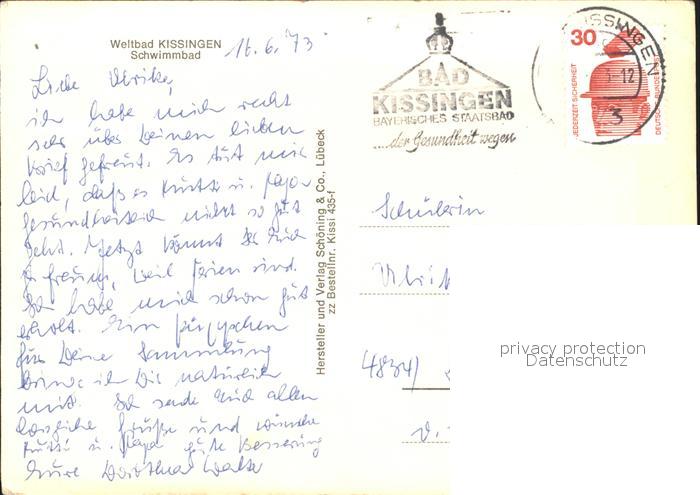 Weltbad KISSINGEN
Schwimmbad
16.6.73
Liebe Ulrike,
ich habe mich recht
sehr über Deinen lieben
Brief gefreut. Es tut mir
leid, daß es Mutti u. Papa
gesundheitlich nicht so gut
geht. Jetzt könnt Ihr Euch
ja freuen, weil Ferien sind.
Ich habe mich schon gut
erholt. Ein Püppchen
für Deine Sammlung
bringe ich Dir natürlich
mit. Ich sende Euch allen
herzliche Grüße und wünsche
Mutti u. Papa gute Besserung
Eure Dorothea
Hersteller und Verlag Schöning & Co., Lübeck
zz Bestellnr. Kissi 435-f
BAD
KISSINGEN
BAYERISCHES STAATSBAD
...der Gesundheit wegen
KISSINGEN
-12
3
30
JEDERZEIT SICHERHEIT
DEUTSCHE BUNDESPOST
Schülerin
Ulri
4834
privacy protection
Datenschutz